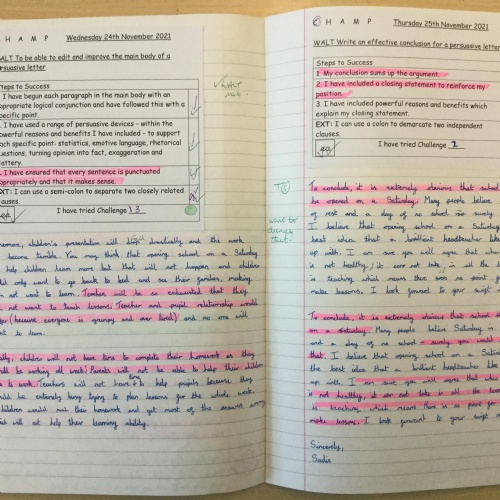 H A M P
Wednesday 24th November 2021
WALT To be able to edit and improve the main body of a
persuasive letter
Steps to Success
I have begun each paragraph in the main body with an
appropriate logical conjunction and have followed this with a
specific point.
I have used a range of persuasive devices - within the
powerful reasons and benefits I have included - to support
each specific point: statistics, emotive language, rhetorical
questions, turning opinion into fact, exaggeration and
flattery.
I have ensured that every sentence is punctuated
appropriately and that it makes sense.
I can use a semi-colon to separate two closely related
clauses.
I have tried Challenge 3
children's presentation will drastically and the work
become terrible. You may think that opening school on a Saturday
help children learn more but that will not happen and children
would only want to go back to bed and see their families, making
not want to learn. Teacher will be so exhausted that they
not want to teach lessons. Teacher and pupil relationship would
(because everyone is grumpy and over tired) and no one will
want to learn.
children will not have time to complete their homework as they
should be working all week! Parents will not be able to help their children
to work. Teachers will not have time to help pupils because they
would be extremely busy trying to plan lessons for the whole week.
children would rush their homework and get most of the answers wrong
which will not help their learning ability.
C H A M P
Thursday 25th November 2021
WALT Write an effective conclusion for a persuasive letter
Steps to Success
1. My conclusion sums up the argument.
2. I have included a closing statement to reinforce my
position.
3. I have included powerful reasons and benefits which
explain my closing statement.
EXT: I can use a colon to demarcate two independent
clauses.
I have tried Challenge 2
To conclude, it is extremely obvious that school
be opened on a Saturday. Many people believe
of rest and a day of no school is surely
I believe that opening school on a Saturday
best idea that a brilliant headteacher like
up with. I am sure you will agree that when
is not healthy; it can not take in all the
is teaching which means there was no point
make lessons. I look forward to your swift
To conclude, it is extremely obvious that school
on a Saturday. Many people believe Saturday is
and a day of no school - surely you would
that. I believe that opening school on a Saturday
the best idea that a brilliant headteacher like
up with. I am sure you will agree that when
is not healthy, it can not take in all the
is teaching, which means there is no point for
make lessons. I look forward to your swift
Sincerely,
Sadia